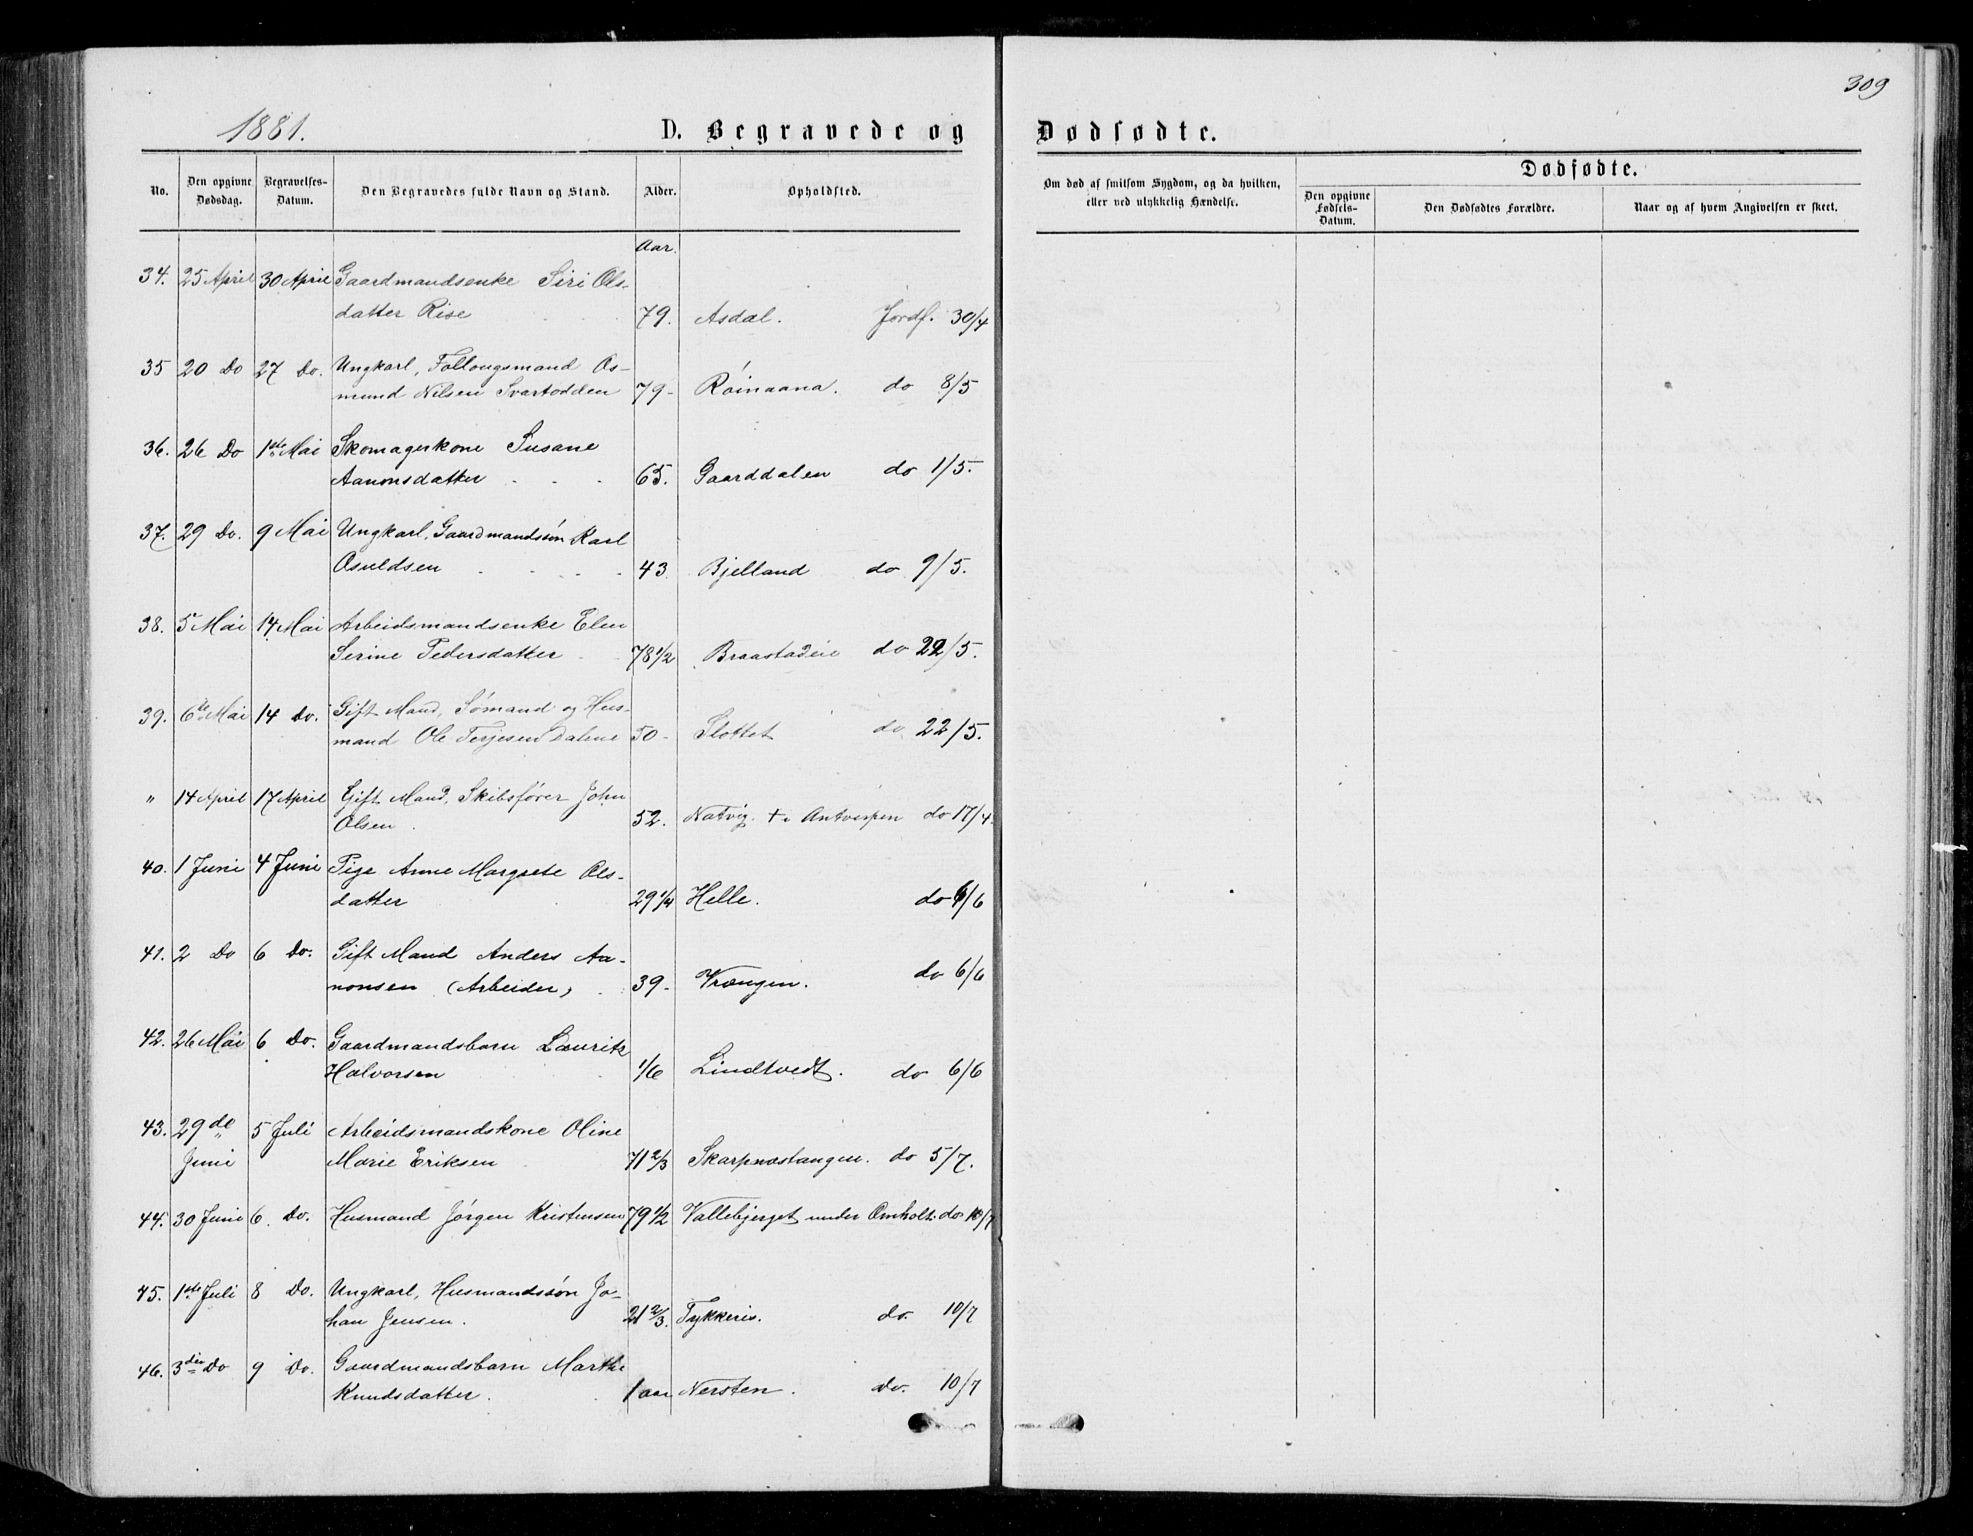 309
1881.
D. Begravede og Dødfødte.
No.
Den opgivne Dødsdag.
Begravelses-Datum.
Den Begravedes fulde Navn og Stand.
Alder.
Opholdsted.
Om død af smitsom Sygdom, og da hvilken,
eller ved ulykkelig Hændelse.
Dødfødte.
Den opgivne Fødsels-Datum.
Den Dødfødtes Forældre.
Naar og af hvem Angivelsen er skeet.
Aar.
34. 25 April 30 April Gaardmandsenke Siri Ols-
datter Rise 79. Asdal. Jordf. 30/4
35 20 Do 27 Do. Ungkarl, Follougsmand Os-
mund Nilsen Svartodden 79- Röinaana. do 8/5
36. 26 Do 1ste Mai Skomagerkone Susane
Aanonsdatter 65. Gaarddalen do 1/5.
37. 29 Do. 9 Mai Ungkarl, Gaardmandssön Karl
Osuldsen 43 Bjelland do 9/5.
38. 5 Mai 14 Mai Arbeidsmandsenke Elen
Serine Pedersdatter 78 1/2 Braastadeie do 22/5.
39. 6te Mai 14 Do. Gift Mand, Sömand og Hus-
mand Ole Terjesen Dalene 50- Slottet do 22/5.
" 14 April 17 April Gift Mand, Skibsförer John
Olsen 52. Natvig. + i Antverpen do 17/4.
40. 1 Juni 4 Juni Pige Anne Margrete Ols-
datter 29 1/4 Helle. do 6/6
41. 2 Do 6 Do. Gift Mand Anders Aa-
nonsen (Arbeider) 39- Vrængen. do 6/6
42. 26 Mai 6 Do. Gaardmandsbarn Lauritz
Halvorsen 1/6 Lindtvedt. do 6/6
43. 29de 5 Juli Arbeidsmandskone Oline
Juni Marie Eriksen 71 2/3 Skarpnæstangen. do 5/7.
44. 30 Juni 6. Do. Husmand Jörgen Kristensen 79 1/2 Vallebjerget under Omholt. do 10/7
45. 1ste Juli 8 Do. Ungkarl, Husmandssön Jo-
han Jensen. 21 2/3. Tykkeris. do. 10/7
46. 3die Do 9 Do. Gaardmandsbarn Marthe
Knudsdatter. 1 aar Nersten. do. 10/7